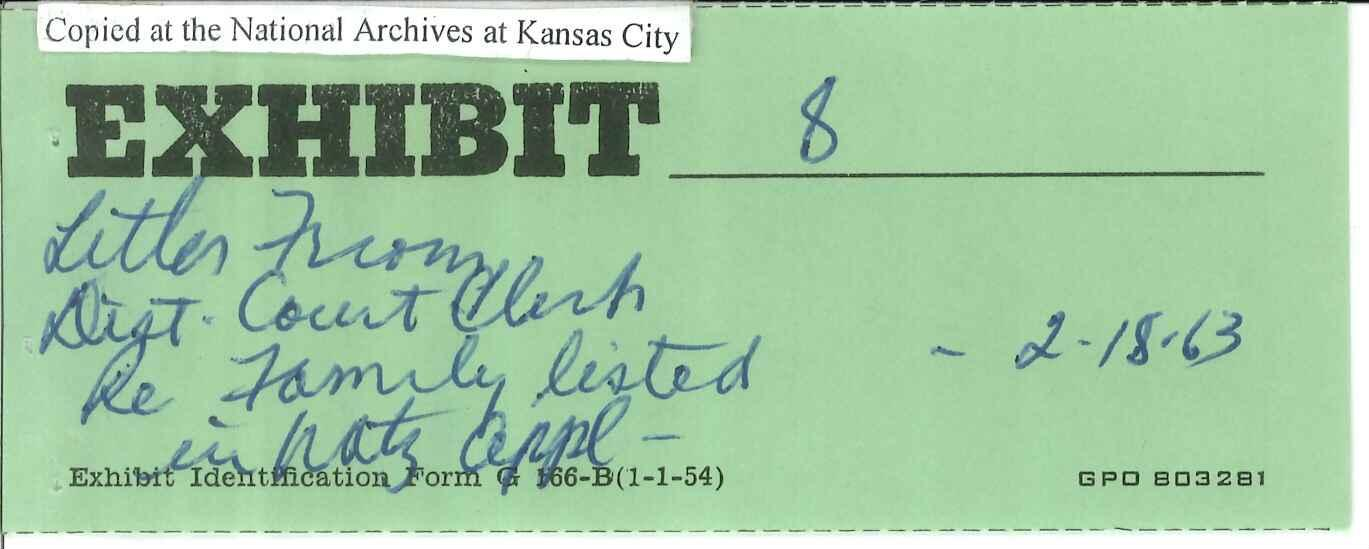 Copied at the National Archives at Kansas City
EXHIBIT 8
Letter From
Dist. Court Clerk
Re Family listed - 2-18-63
in Natz Appl -
Exhibit Identification Form G 166-B(1-1-54) GPO 803281